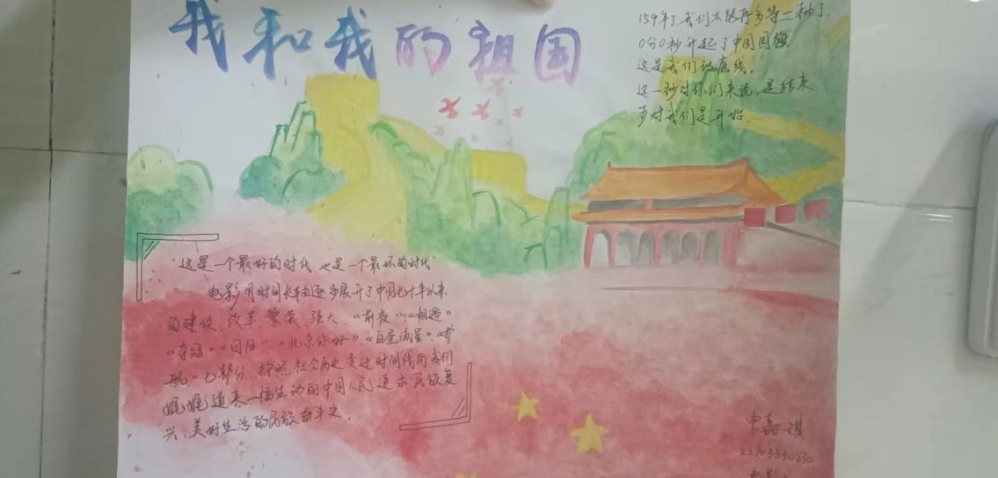 我和我的祖国
154年了,我们不能再多等一秒了.
0分0秒升起了中国国旗
这是我们的底线.
这一秒对你们来说,是结束
对我们是开始
"这是一个最好的时代 也是一个最坏的时代"
电影用时间长车由逐步展开了中国七十年以来
的建设、改革、繁荣、强大.《前夜》《相遇》
《夺冠》《回归》《北京你好》《白昼流星》《护
航》七部分.按照 社会历史变迁时间线向我们
娓娓道来一幅生动的中国人民追求民族复
兴、美好生活的民族奋斗史.